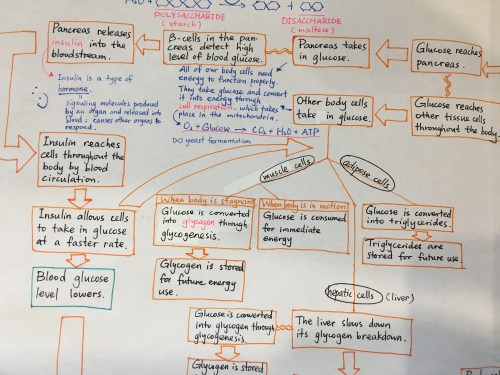 H₂O +
POLYSACCHARIDE
(starch)
DISACCHARIDE
(maltose)
Pancreas releases
insulin into the
bloodstream.
β-cells in the pan-
creas detect high
level of blood glucose.
Pancreas takes
in glucose.
Glucose reaches
pancreas.
Insulin is a type of
hormone.
signaling molecules produced
by an organ and released into
blood; causes other organs to
respond.
All of our body cells need
energy to function properly.
They take glucose and convert
it into energy through
cell respiration, which takes
place in the mitochondria.
O₂ + Glucose → CO₂ + H₂O + ATP
yeast fermentation
Other body cells
take in glucose.
Glucose reaches
other tissue cells
throughout the body.
Insulin reaches
cells throughout the
body by blood
circulation.
muscle cells
adipose cells
Insulin allows cells
to take in glucose
at a faster rate.
When body is stagnant
Glucose is converted
into glycogen through
glycogenesis.
When body is in motion
Glucose is consumed
for immediate
energy
Glucose is converted
into triglycerides.
Triglycerides are
stored for future use.
Blood glucose
level lowers.
Glycogen is stored
for future energy
use.
hepatic cells (liver)
Glucose is converted
into glycogen through
glycogenesis.
The liver slows down
its glycogen breakdown.
Glycogen is stored